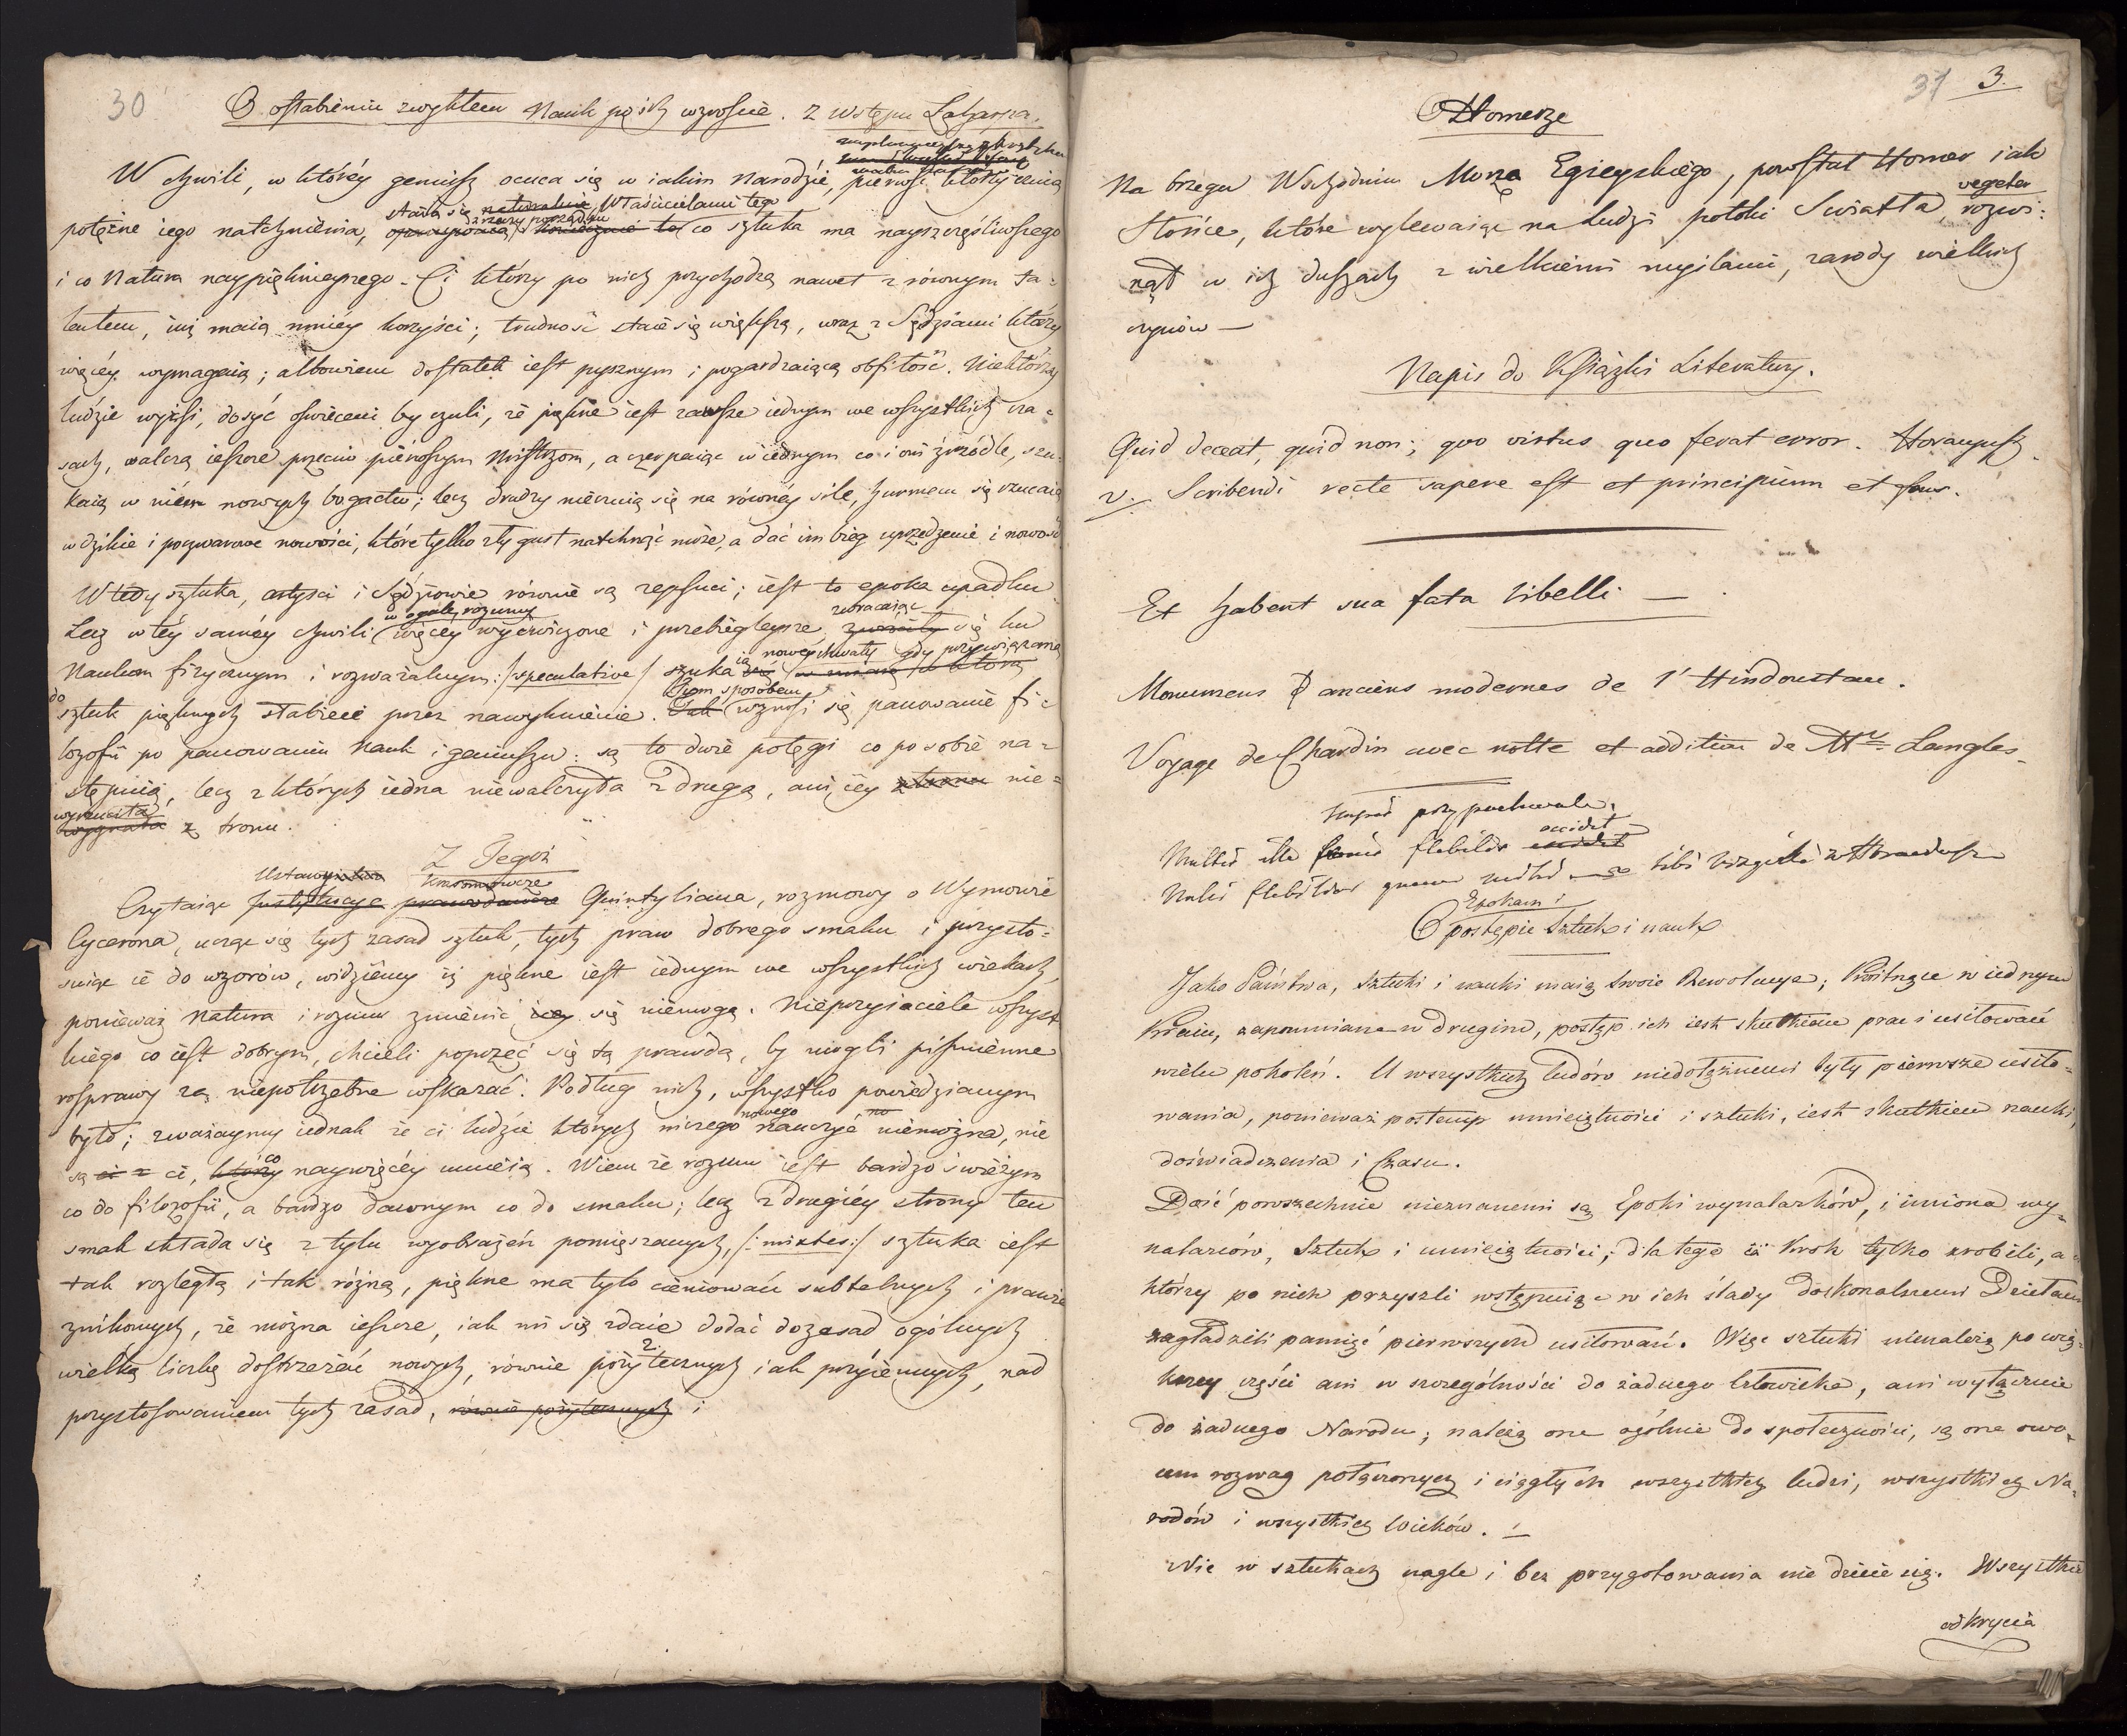 30
O osłabieniu zwykłem Nauk po ich wzroście. Z Wstępu Laharpa.
W chwili, w któréy geniusz ocuca się w iakim Narodzie, piérwsi którzy czuią
staią się naturalnie Właścicielami tego
z rzeczy porządku
potężne iego natchnienia, opanowuią koniecznie to co sztuka ma nayszczęśliwszego
i co Natura naypięknieyszego. Ci którzy po nich przychodzą nawet z równym ta=
lentem, iuż maią mniéy korzyści; trudność staie się większą, wraz z Sędziami którzy
więcéy wymagaią; albowiem dostatek iest pysznym i pogardzaiącą obfitość. Niektórzy
ludzie wyżsi, dosyć oświeceni by czuli, że piękne iest zawsze iednym we wszystkich cza=
sach, walczą ieszcze przeciw piérwszym Mistrzom, a czerpaiąc w iednym co i oni źrzódle, szu=
kaią w niém nowych bogactw; lecz drudzy nieczuią się na równéy sile, hurmem się rzucaią
w dzikie i poczwarne nowości, które tylko zły gust natchnąć może, a dać im bieg uprzedzenie i nowość
Wtedy sztuka, artyści i Sędziowie równie są zepsuci; iest to epoka upadku
w ogóle rozumy
zwracaiąc
Lecz w téy saméy chwili więcéy wyćwiczone i przebiegleysze zwróciły się ku
nowéy chwały gdy przywiązanie
Naukom fizycznym i rozważalnym:/speculative/ szukaią
do
Tym sposobem
sztuk pięknych słabieie przez nawyknienie. Tak wznosi się panowanie fi=
lozofii po panowaniu Nauk i geniuszu: są to dwie potęgi co po sobie na=
stępuią, lecz z których iedna niewalczyła z drugą, ani iéy z tronu nie=
wyrzuciła
wygnała z tronu.
Z Tegoż
Czytaiąc Instytucye prawodawcze Quintyliana, rozmowy o Wymowie
Cycerona, ucząc się tych zasad sztuk, tych praw dobrego smaku i przysto=
suiąc ie do wzorów, widziemy iż piękne iest iednym we wszystkich wiekach,
ponieważ Natura i rozum zmienić się niemogą. Nieprzyiaciele wszyst
kiego co iest dobrym, chcieli poprzeć się tą prawdą, by mogli piśmienne
rosprawy za niepotrzebne wskazać. Podług nich, wszystko powiedzianym
nowego
było; zważaymy iednak że ci ludzie których niczego nauczyć niemożna, nie
co
są ci, którzy naywięcéy umieią. Wiem że rozum iest bardzo świeżym
co do filozofii, a bardzo dawnym co do smaku; lecz z drugiéy strony ten
smak składa się z tylu wyobrażeń pomięszanych, /:mixtes:/ sztuka iest
tak rozległą i tak różną, piękne ma tylo cieniowań subtelnych i prawie
znikomych, że można ieszcze, iak mi się zdaie dodać do zasad ogólnych
wielką liczbę dostrzeżeń nowych, równie pożytecznych iak przyiemnych, nad
przystosowaniem tych zasad, równie pożytecznych i
31 3.
O Homerze
Na brzegu Wschodnim Morza Egieyskiego, powstał Homer iak
Słońce, które wylewaiąc na ludzi potoki Swiatła, rozwi=
nął w ich duszach z wielkiemi myślami, zarody wielkich
czynów —
Napis do Książki Literatury.
Quid deceat, quid non; quo virtus quo ferat error. Horacyusz.
v. Scribendi recte sapere est et principium et fons.
Et habent sua fata libelli —
Monumens anciens modernes de l'Hindoustan.
Voyage de Chardin avec notte et addition de Mr. Langles.
Napis przy pochwale.
occidit
Multis ille flebilis occidit
Nulli flebilior quam tibi Wirgili z Horacyusza
Epokach i
O postępie Sztuk i nauk
Jako Państwa, Sztuki i nauki maią swoie Rewolucye; Kwitnące w iednym
Kraiu, zapomniane w drugim, postęp ich iest skutkiem prac i usiłowań
wielu pokoleń. U wszystkich ludów niedołężnemi były pierwsze usiło=
wania, ponieważ postemp umieiętności i sztuki, iest skutkiem nauki,
doświadczenia i Czasu.
Dość powszechnie nieznanemi są Epoki wynalazków, i imiona wy=
nalazców, Sztuk i umieiętności; dla tego iż Krok tylko zrobili, a
którzy po nich przyszli wstępuiąc w ich ślady doskonalszemi Dziełami
zagładzili pamięć pierwszych usiłowań. Więc sztuki nienależą po więk=
szey części ani w szczególności do żadnego Człowieka, ani wyłącznie
do żadnego Narodu; należą one ogólnie do społeczności, są one owo=
cem rozwag połączonych i ciągłych wszystkich ludzi, wszystkich Na=
rodów i wszystkich Wieków. —
Nic w sztukach nagle i bez przygotowania nie dzieie się. Wszystkie
odkrycia